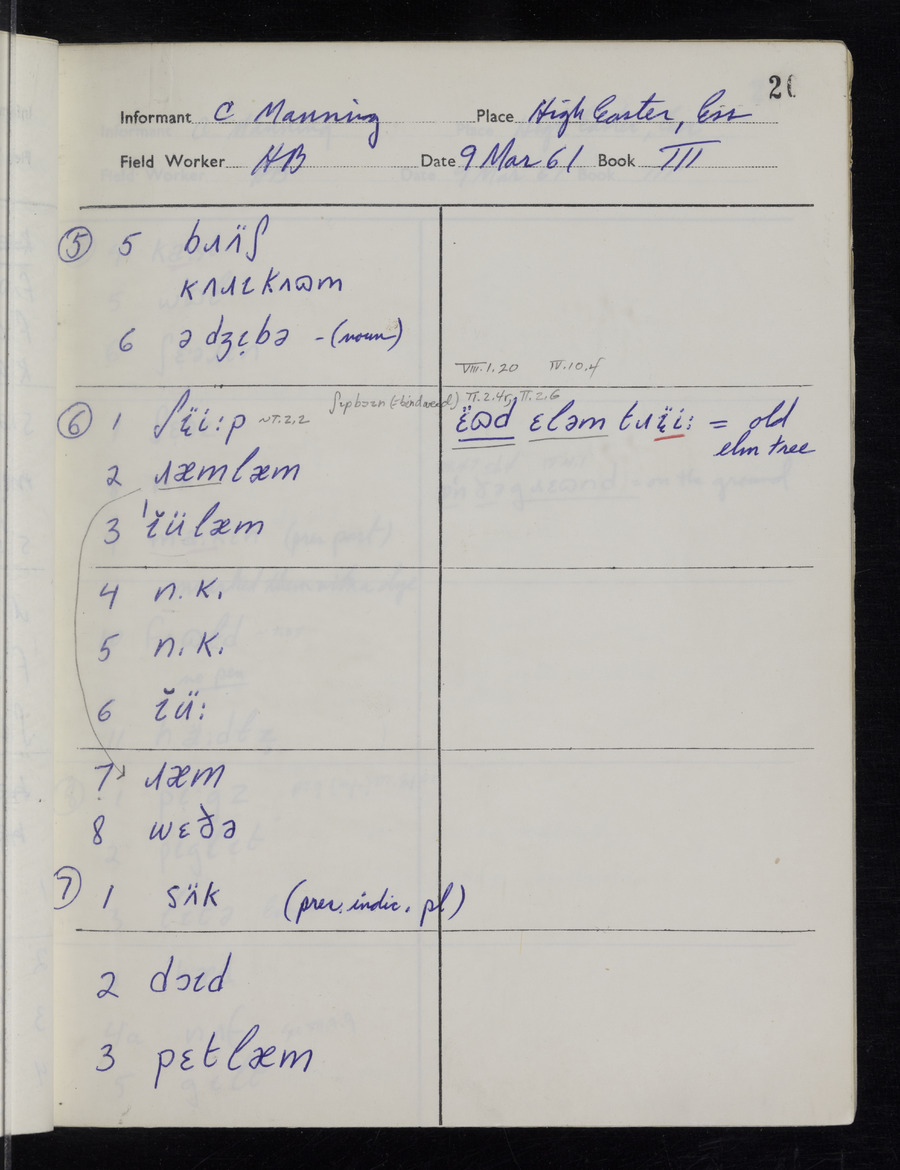 26
Informant C Manning Place High Easter, Ess
Field Worker HB Date 9 Mar 61 Book III
⑤ 5 bɹʌ̈ʃ
6 ə dʒɪ̣bə - (noun)
VIII.1.20 IV.10.4
⑥ 1 ʃɪ̤̈i:p VI.2.2
VI.2.4, VI.2.6
ɛ̈ɷd ɛləm tɹɪ̤̈i: = old
elm tree
2 ɹæmlæm
3 ˈɪ̆ülæm
4 n.k.
5 n.k.
6 ɪ̆ü:
7 ɹæm
8 wɛðə
⑦ 1 sʌ̈k (pres. indic. pl)
2 dɔɪd
3 pɛtlæm